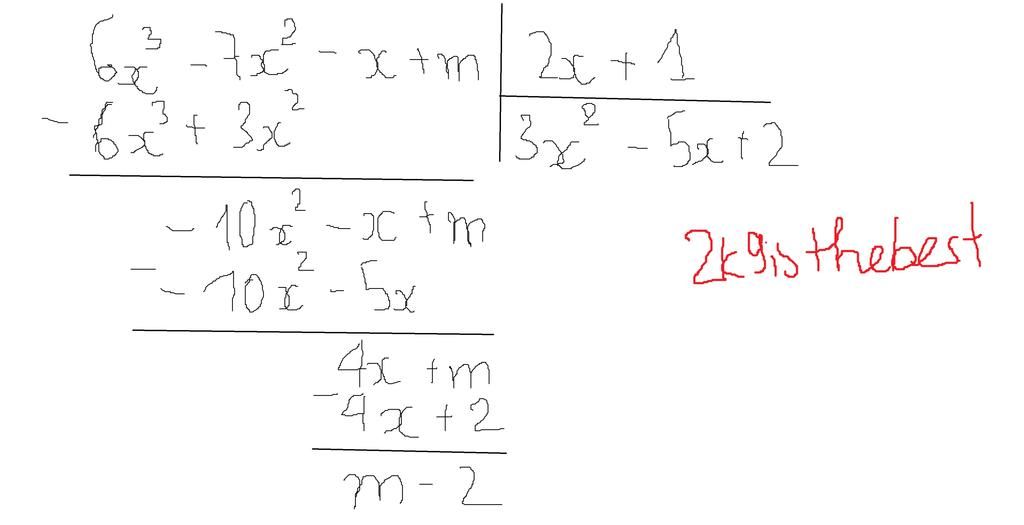 6x³ - 7x² - x + m | 2x + 1
- 6x³ + 3x² | 3x² - 5x + 2
- 10x² - x + m
- - 10x² - 5x
4x + m
- 4x + 2
m - 2
2k9isthebest